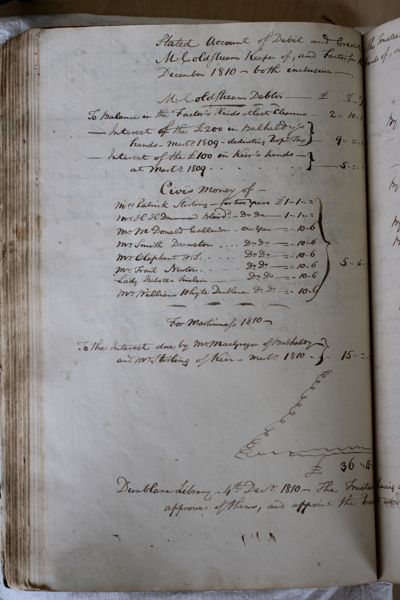 Stated Account of Debit and Credit
Mr Coldstream Keeper of, and Factor for
December 1810 – both inclusive –
Mr Coldstream Debtor £
To Balance in the Factor's hands at last Clearance 2 .. 10 ..
— Interest of the £200 in Balhaldy's
hands – Marts 1809 – deducting Propy Tax } 9 ..
— Interest of the £100 in Keir's hands —
at Marts 1809 } 5 ..
Civis Money of –
Mrs Patrick Stirling – for two years £ 1 .. 1 .. –
Mr H H Drummond Do Do – 1 .. 1 .. –
Mr McDonald Callander – one year – .. 10 .. 6
Mr Smith Deanston .... Do Do – .. 10 .. 6
Mr Oliphant W.S. .... Do Do – .. 10 .. 6
Mr Newton .. Do Do – .. 10 .. 6
Lady Isabella Do Do – .. 10 .. 6
Mr William Whyte Dunblane Do Do – .. 10 .. 6
5 .. 5 ..
For Martinmass 1810 –
To the Interest due by Mr MacGregor of Balhaldy
and Mr Stirling of Keir – Marts 1810 – } 15 ..
£ 36 ..
Dunblane Library – 4th Decr 1810 – The Trustees having
approve of them, and appoint the
The Trustee